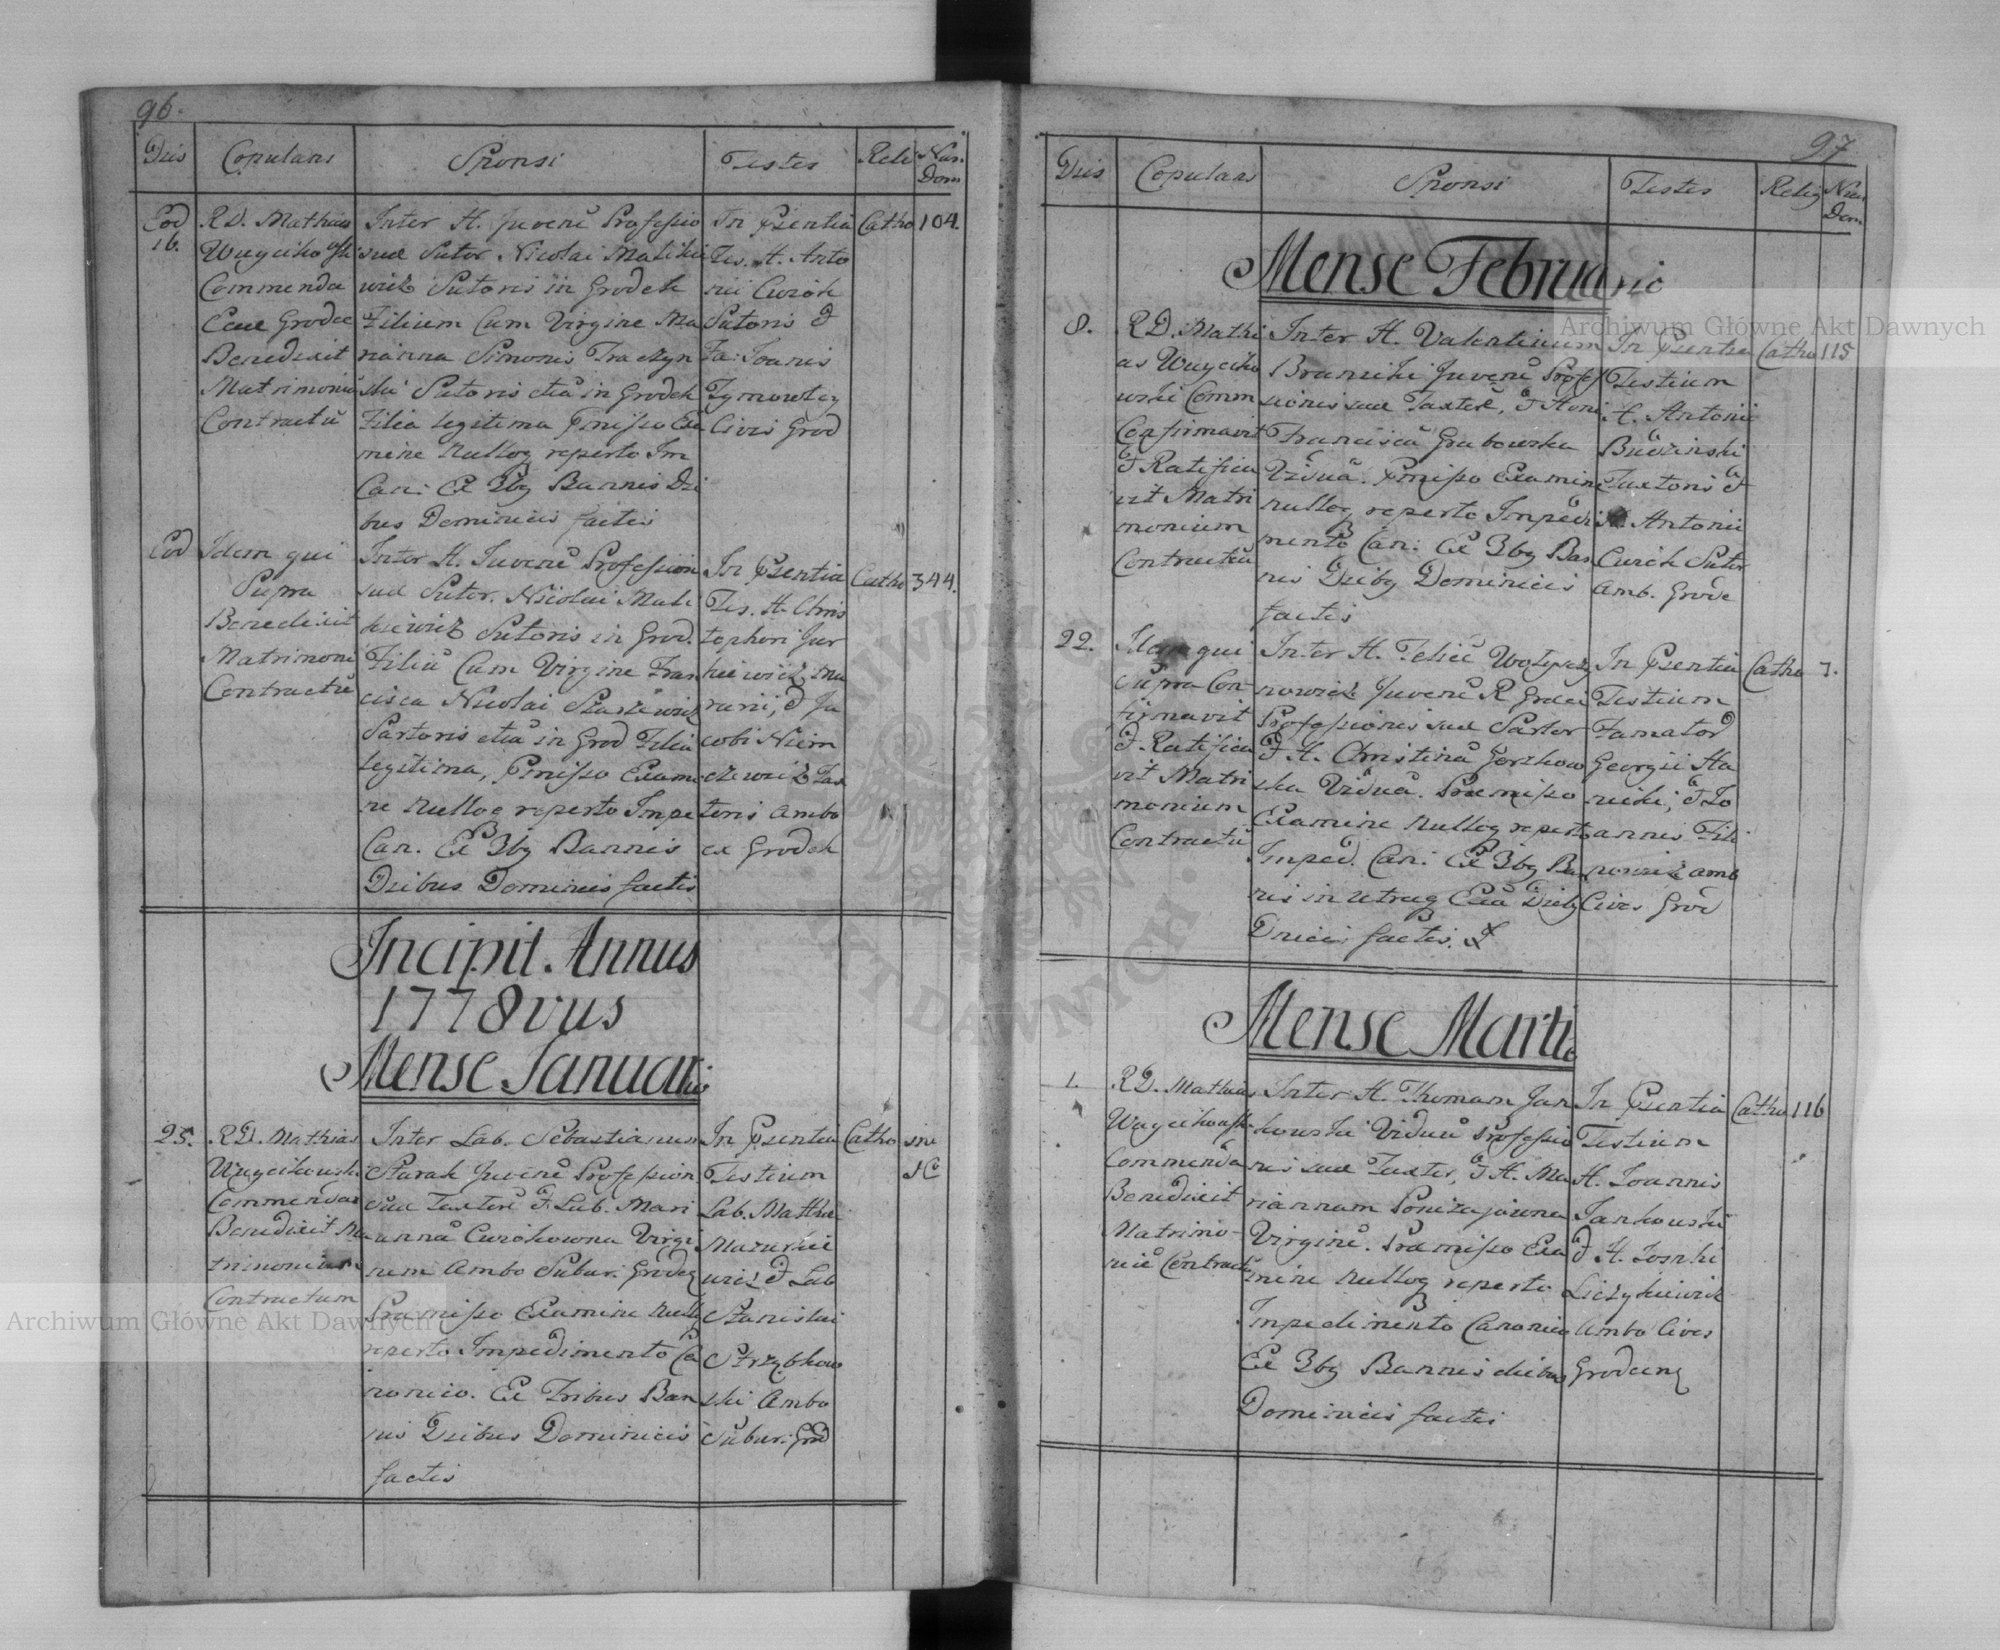 96.
Dies
Copulans
Sponsi
Testes
Reli
Nun.
Dom
Eod
16.
R.D. Mathias
Commenda
Benedixit
Matrimoniū
Contractū
Inter H. Juvenē Professio
suæ Sutor. Nicolai Malikie
wicz Sutoris in Grodek
Filium Cum Virgine Ma
rianna Simonis
ski Sutoris etiā in Grodek
Filia legitima
mine Nulloq reperto Im
Can: Et 3bq Bannis Di
bus Dominicis factis
In Psentia
Tes. H. Anto
nii Curok
Sutoris &
Fa: Joanis
Civis Grod
Catho
104.
Eod
Idem qui
Supra
Benedixit
Matrimoni
Contractū
Inter H. Juvenē Professioni
suæ Sutor. Nicolai Mali
kiewicz Sutoris in Grod.
Filiū Cum Virgine Fran
cisca Nicolai
Sartoris etiā in Grod Filia
legitima, Pmisso Exami
ne Nulloq reperto Impe
Can. Et 3bq Bannis
Diebus Dominicis factis
In Psentia
Tes. H. Chris
tophori Jur
kiewicz Mu
rarii, & Ja
cobi Niem
czewicz Tex
toris Ambo
ex Grodek
Catho
344.
Incipit Annus
1778vus
Mense Januario
25.
R.D. Mathias
Wuycikowski
Commendar
Benedixit Ma
trimonium
Contractum
Inter Lab. Sebastianum
Starak Juvenē Profession
suæ Textorē & Lab. Mari
annā Curokowna Virgi
nem Ambo Subur. Grodeq
Præmisso Examine Nullo
reperto Impedimento Ca
nonico. Et Tribus Ban
nis Diebus Dominicis
factis
In Psentia
Testium
Lab. Mathei
Mazurkie
wicz & Lab
Stanislai
Strzybkow
ski Ambo
Subur. Grod
Catho
sine
N
97
Dies
Copulans
Sponsi
Testes
Relig
Num
Dom
Mense Februario
8.
R.D. Mathi
as Wuyciko
wski Comm
Confirmavit
& Ratifica
vit Matri
monium
Contractū
Inter H. Valentinum
Brunicki Juvenē Profes
sionis suæ Textorē, & Honē
Franciscā Grabowska
Viduā. Pmisso Examine
nulloq reperto Impedi
mento Can: Et 3bq Ban
nis Diebq Dominicis
factis
In Psentia
Testium
H. Antonii
Budzinski
Textoris &
H. Antonii
Curok Sutor
Amb. Grode
Catho
115
22.
Idem qui
Supra Con
firmavit
& Ratifica
vit Matri
monium
Contractū
Inter H. Felicē
nowicz Juvenē R Græci
Professionis suæ Sartor
& H. Christinā Gorzkow
ska Viduā. Præmisso
Examine Nulloq reperto
Imped. Can: Et 3bq Ba
nis in utraq Ecca Diebq
Dnicis factis.
In Psentia
Testium
Famator
Georgii Ha
nicki, & Jo
annis Fili
nowicz amb
Cives Grod
Catho
7.
Mense Martio
1.
R.D. Mathias
Wuycikowski
Commenda
Benedixit
Matrimo
niū Contractū
Inter H. Thomam Jan
kowski Viduū Professio
nis suæ Textor, & H. Ma
riannam
Virginē. Præmisso Exa
mine Nulloq reperto
Impedimento Canonico
Et 3bq Bannis diebus
Dominicis factis
In Psentia
Testium
H. Joannis
Jankowski
& H. Josephi
Liczykiewicz
Ambo Cives
Grodenq
Catho
116
Archiwum Główne Akt Dawnych
Archiwum Główne Akt Dawnych